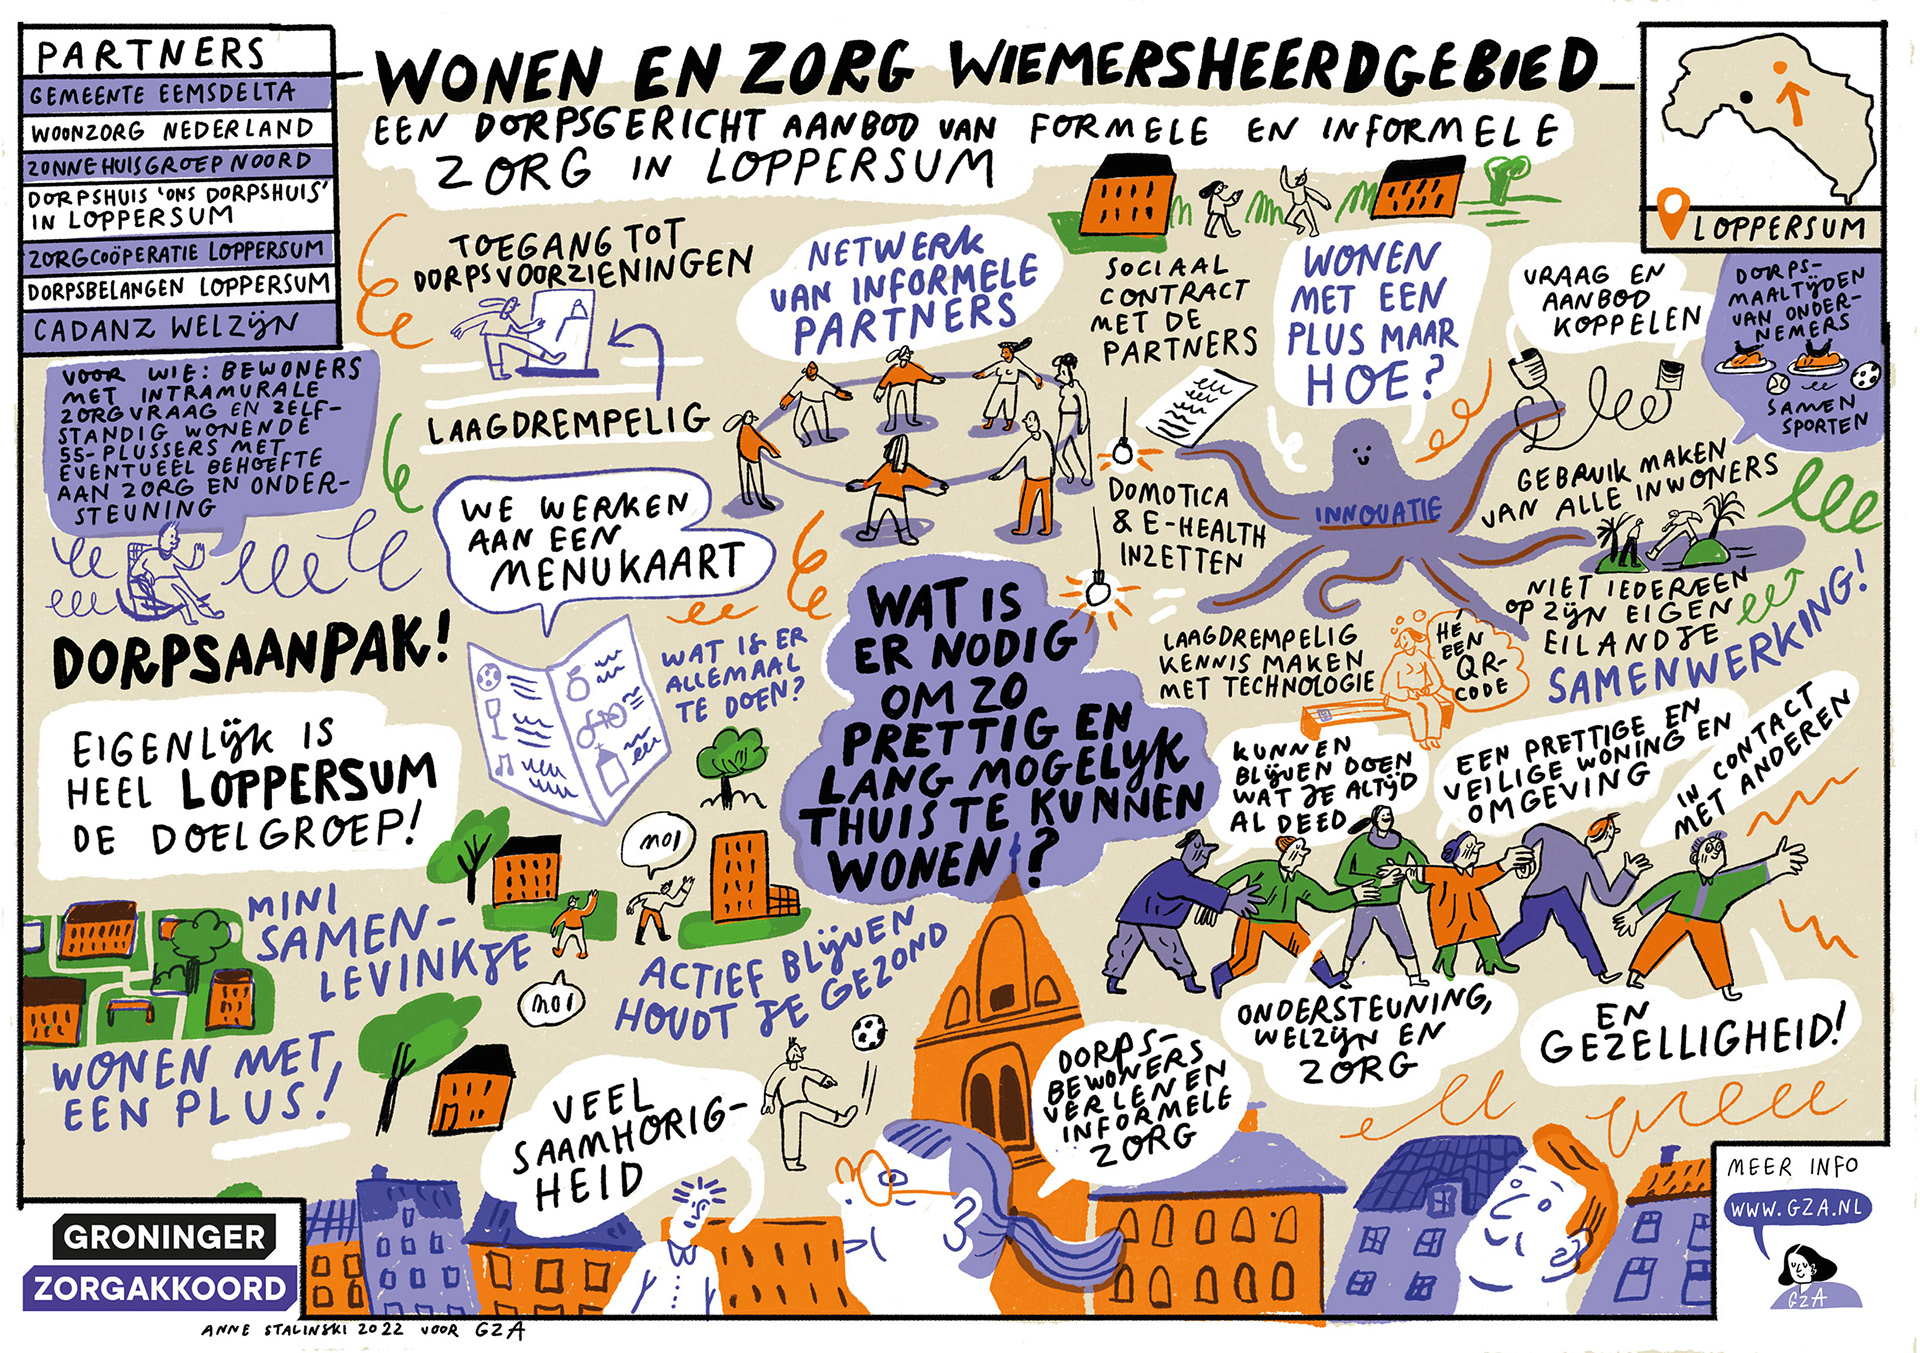 PARTNERS
GEMEENTE EEMSDELTA
WOONZORG NEDERLAND
ZONNEHUISGROEP NOORD
DORPSHUIS 'ONS DORPSHUIS'
IN LOPPERSUM
ZORGCOÖPERATIE LOPPERSUM
DORPSBELANGEN LOPPERSUM
CADANZ WELZIJN
WONEN EN ZORG WIEMERSHEERDGEBIED
EEN DORPSGERICHT AANBOD VAN FORMELE EN INFORMELE
ZORG IN LOPPERSUM
LOPPERSUM
VOOR WIE: BEWONERS
MET INTRAMURALE
ZORGVRAAG EN ZELF-
STANDIG WONENDE
55-PLUSSERS MET
EVENTUEEL BEHOEFTE
AAN ZORG EN ONDER-
STEUNING
TOEGANG TOT
DORPSVOORZIENINGEN
LAAGDREMPELIG
NETWERK
VAN INFORMELE
PARTNERS
SOCIAAL
CONTRACT
MET DE
PARTNERS
WONEN
MET EEN
PLUS MAAR
HOE?
VRAAG EN
AANBOD
KOPPELEN
DORPS-
MAALTIJDEN
VAN ONDER-
NEMERS
SAMEN
SPORTEN
WE WERKEN
AAN EEN
MENUKAART
DOMOTICA
& E-HEALTH
INZETTEN
INNOVATIE
GEBRUIK MAKEN
VAN ALLE INWONERS
NIET IEDEREEN
OP ZIJN EIGEN
EILANDJE
SAMENWERKING!
LAAGDREMPELIG
KENNIS MAKEN
MET TECHNOLOGIE
HÉ
EEN
QR-
CODE
DORPSAANPAK!
WAT IS ER
ALLEMAAL
TE DOEN?
WAT IS
ER NODIG
OM ZO
PRETTIG EN
LANG MOGELIJK
THUIS TE KUNNEN
WONEN?
EIGENLIJK IS
HEEL LOPPERSUM
DE DOELGROEP!
KUNNEN
BLIJVEN DOEN
WAT JE ALTIJD
AL DEED
EEN PRETTIGE EN
VEILIGE WONING EN
OMGEVING
IN CONTACT
MET ANDEREN
MOI
MOI
MINI
SAMEN-
LEVINKJE
ACTIEF BLIJVEN
HOUDT JE GEZOND
WONEN MET
EEN PLUS!
ONDERSTEUNING,
WELZIJN EN
ZORG
EN
GEZELLIGHEID!
VEEL
SAAMHORIG-
HEID
DORPS-
BEWONERS
VERLENEN
INFORMELE
ZORG
MEER INFO
WWW.GZA.NL
GZA
GRONINGER
ZORGAKKOORD
ANNE STALINSKI 2022 VOOR GZA